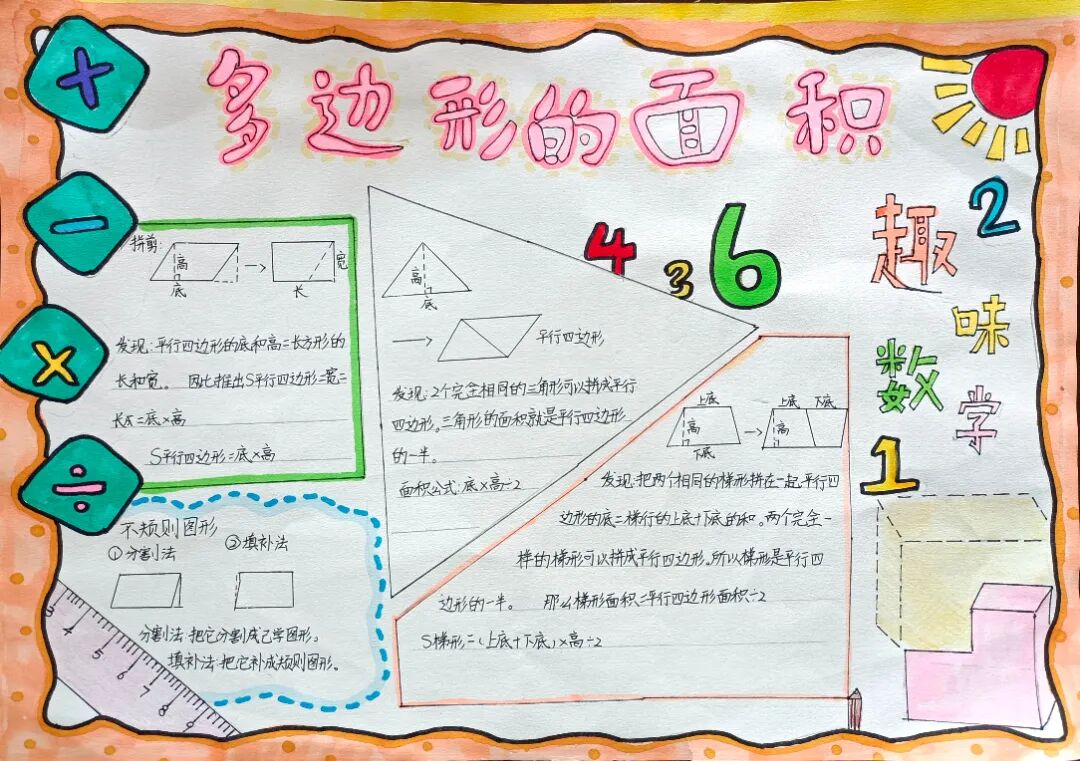 多边形的面积
+
-
×
÷
2
4
3
6
1
趣
味
数
学
拼剪:
高
底
宽
长
发现:平行四边形的底和高=长方形的
长和宽。 因此推出S平行四边形=宽=
S平行四边形=底×高
高
底
平行四边形
发现:2个完全相同的三角形可以拼成平行
四边形。三角形的面积就是平行四边形
的一半。
面积公式:底×高÷2
上底
高
下底
上底 下底
高
发现:把两个相同的梯形拼在一起,平行四
边形的底=梯行的上底+下底的和。两个完全一
样的梯形可以拼成平行四边形。所以梯形是平行四
边形的一半。 那么梯形面积=平行四边形面积÷2
S梯形=(上底+下底)×高÷2
不规则图形
①分割法
②填补法
分割法:把它分割成已学图形。
填补法:把它补成规则图形。
3 4 5 6 7 8 9